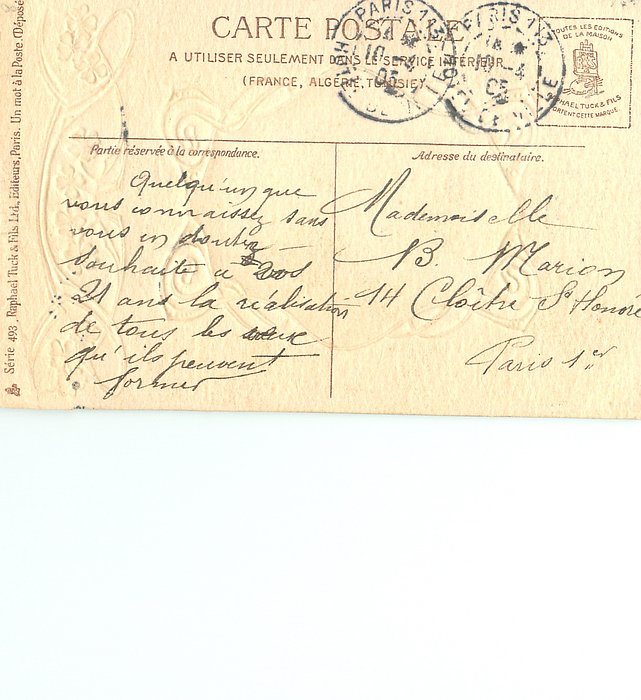 CARTE POSTALE
A UTILISER SEULEMENT DANS LE SERVICE INTÉRIEUR
(FRANCE, ALGÉRIE, TUNISIE)
PARIS 13
10
05
PARIS 13
05
TOUTES LES ÉDITIONS
DE LA MAISON
RAPHAEL TUCK & FILS
PORTENT CETTE MARQUE
Série 493. Raphael Tuck & Fils Ltd., Editeurs, Paris. Un mot à la Poste. (Déposé
Partie réservée à la correspondance.
Quelqu'un que
vous connaissez sans
vous en doutez
souhaite à vos
21 ans la réalisation
de tous les
qu'ils peuvent
former
Adresse du destinataire.
Mademoiselle
B. Marion
14 Cloître St Honoré
Paris 1er